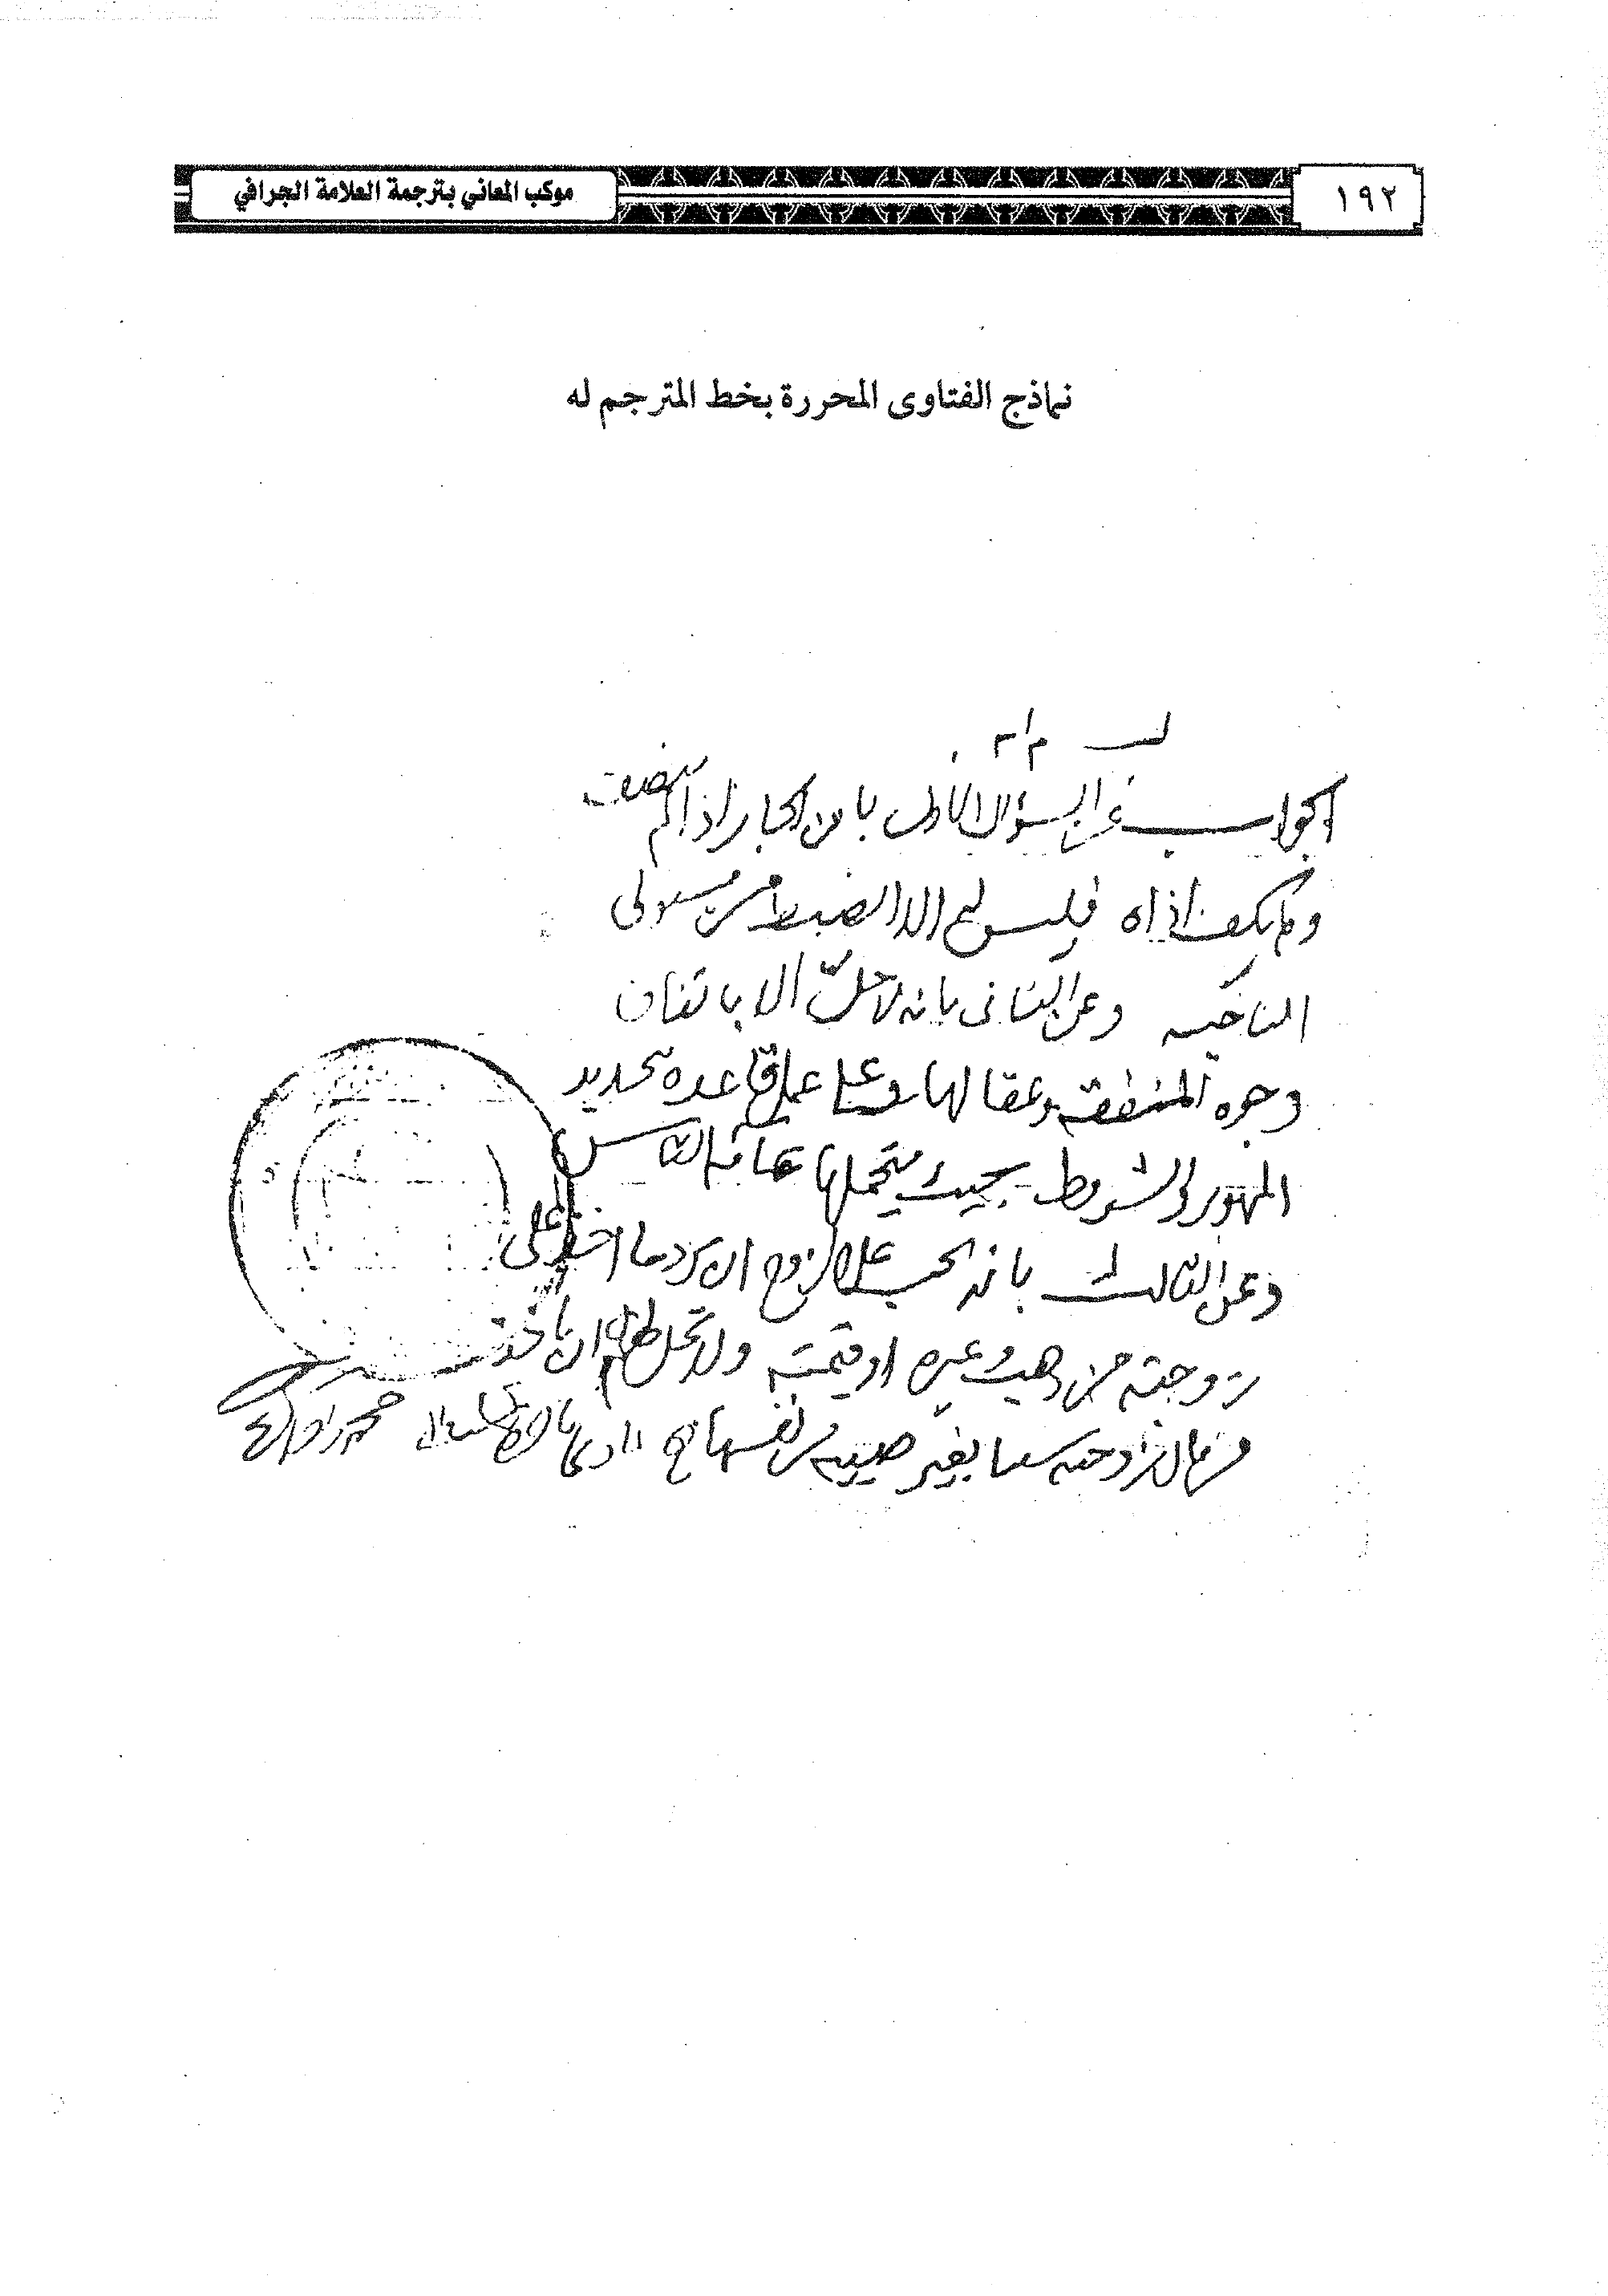 ١٩٢
موكب المعاني بترجمة العلامة الجرافي
نماذج الفتاوى المحررة بخط المترجم له
الجواب عن السؤال الاول بان الجار اذا لم ينصف
ولم يكف اذاه فليس له الا الضبط من مسئولى
الناحيه وعن الثانى بانه لا حل الا باتفاق
وجوه المنطقه وعقالها على قاعده تحديد
المهور والشروط بحيث يتحملها عامة الناس
وعن الثالث بانه يجب على الزوج ان يرد ما اخذ على
زوجته من ذهب وغيره او قيمته ولا يحل ان ياخذ
من مال زوجته شيئا بغير من نفسها